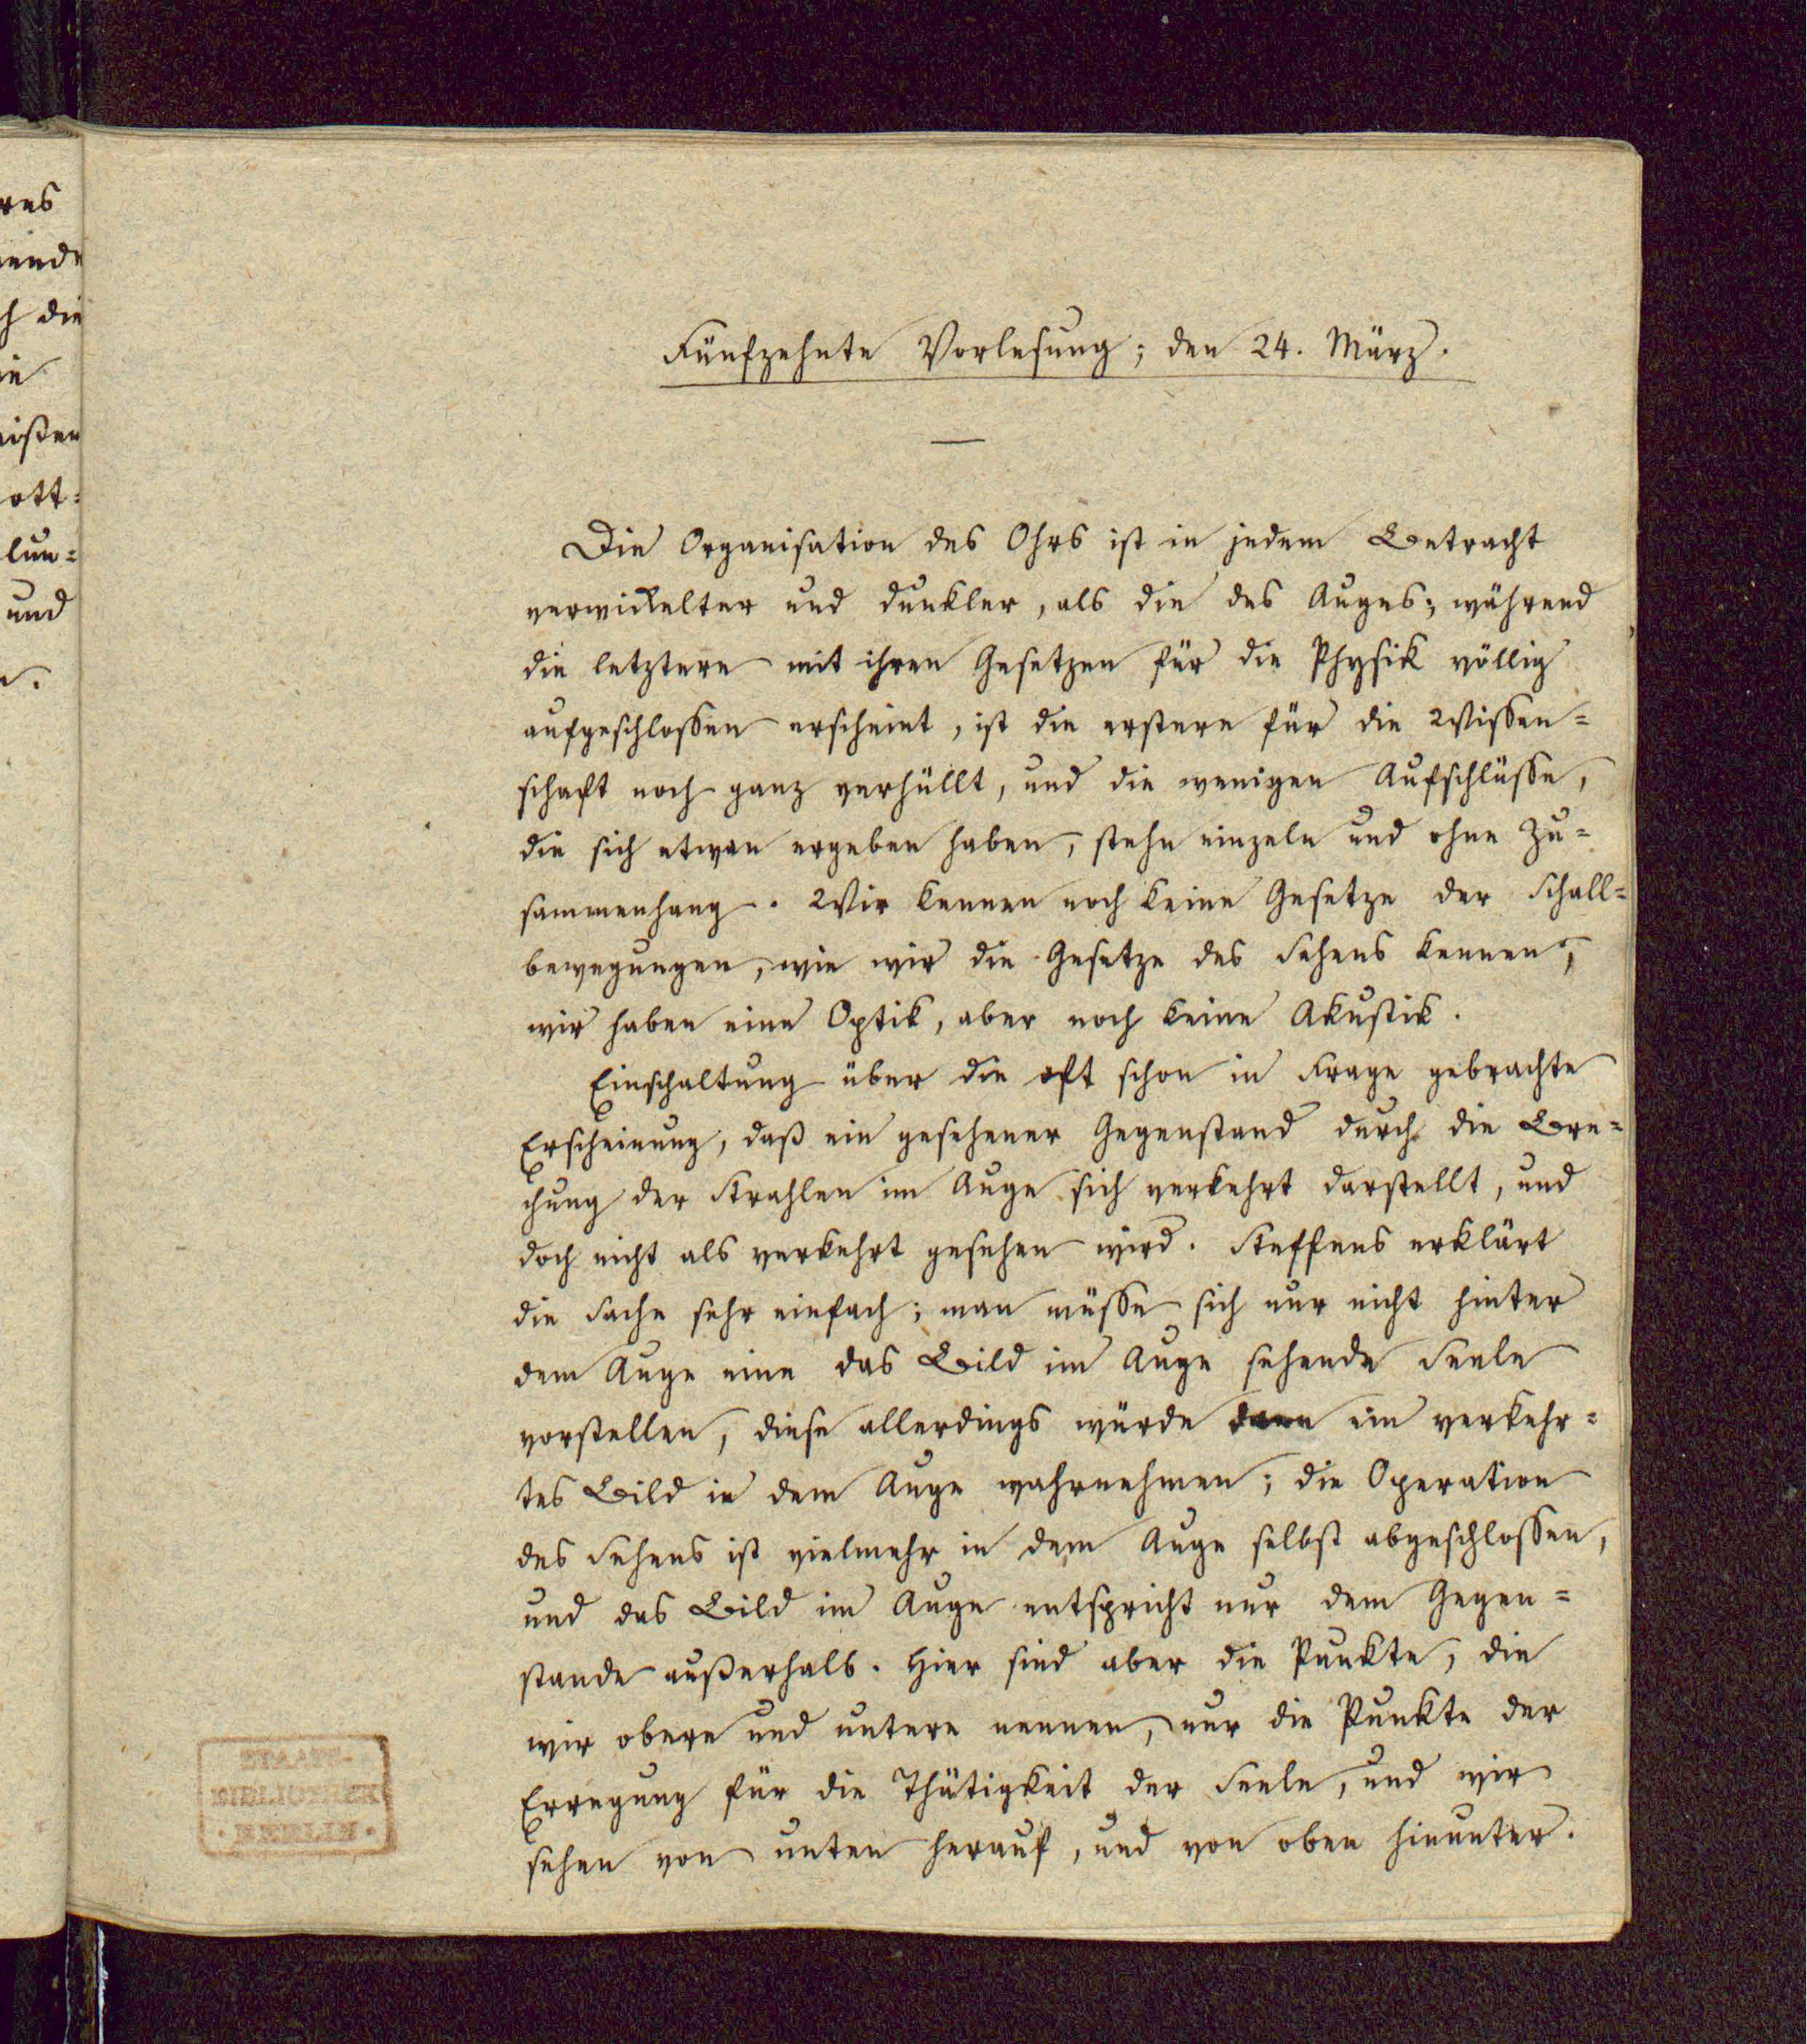 res
ende
h die
ie
ißen
ott-
lun-
und
n.
Fünfzehnte Vorlesung; den 24. März.
Die Organisation des Ohrs ist in jedem Betracht
verwickelter und dunkler, als die des Auges; während
die letztere mit ihren Gesetzen für die Physik völlig
aufgeschlossen erscheint, ist die erstere für die Wissen-
schaft noch ganz verhüllt, und die wenigen Aufschlüsse,
die sich etwan ergeben haben, stehn einzeln und ohne Zu-
sammenhang. Wir kennen noch keine Gesetze der Schall-
bewegungen, wie wir die Gesetze des Sehens kennen;
wir haben eine Optik, aber noch keine Akustik.
Einschaltung über die oft schon in Frage gebrachte
Erscheinung, daß ein gesehener Gegenstand durch die Bre-
chung der Strahlen im Auge sich verkehrt darstellt, und
doch nicht als verkehrt gesehen wird. Steffens erklärt
die Sache sehr einfach; man müsse sich nur nicht hinter
dem Auge eine das Bild im Auge sehende Seele
vorstellen, diese allerdings würde dann ein verkehr-
tes Bild in dem Auge wahrnehmen; die Operation
des Sehens ist vielmehr in dem Auge selbst abgeschlossen,
und das Bild im Auge entspricht nur dem Gegen-
stande außerhalb. Hier sind aber die Punkte, die
wir obere und untere nennen, nur die Punkte der
Erregung für die Thätigkeit der Seele, und wir
sehen von unten herauf, und von oben hinunter.
STAATS-
BIBLIOTHEK
· BERLIN ·